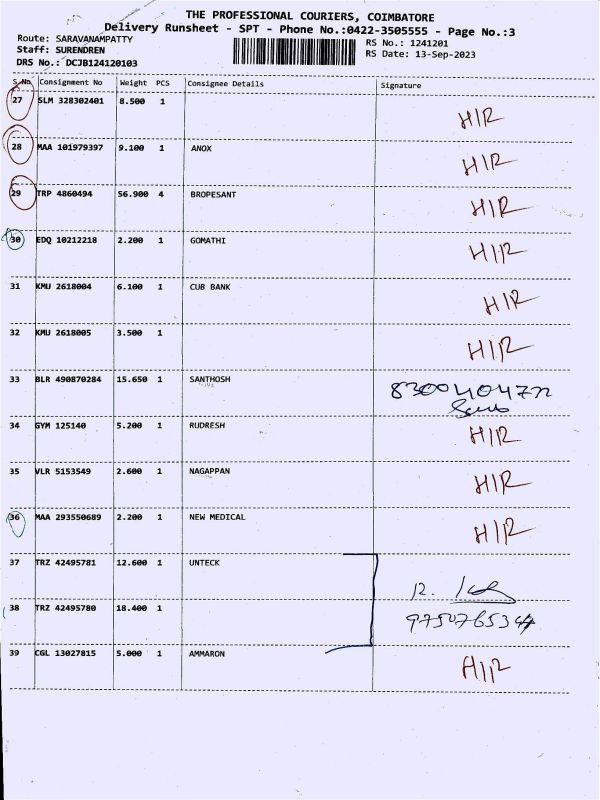 THE PROFESSIONAL COURIERS, COIMBATORE
Delivery Runsheet - SPT - Phone No.:0422-3505555 - Page No.:3
Route: SARAVANAMPATTY
Staff: SURENDREN
DRS No.: DCJB124120103
RS No.: 1241201
RS Date: 13-Sep-2023
S.No. Consignment No Weight PCS Consignee Details Signature
27 SLM 328302401 8.500 1 H/R
28 MAA 101979397 9.100 1 ANOX H/R
29 TRP 4860494 56.900 4 BROPESANT H/R
30 EDQ 10212218 2.200 1 GOMATHI H/R
31 KMU 2618004 6.100 1 CUB BANK H/R
32 KMU 2618005 3.500 1 H/R
33 BLR 490870284 15.650 1 SANTHOSH
34 GYM 125140 5.200 1 RUDRESH H/R
35 VLR 5153549 2.600 1 NAGAPPAN H/R
36 MAA 293550689 2.200 1 NEW MEDICAL H/R
37 TRZ 42495781 12.600 1 UNTECK
38 TRZ 42495780 18.400 1
39 CGL 13027815 5.000 1 AMMARON H/R